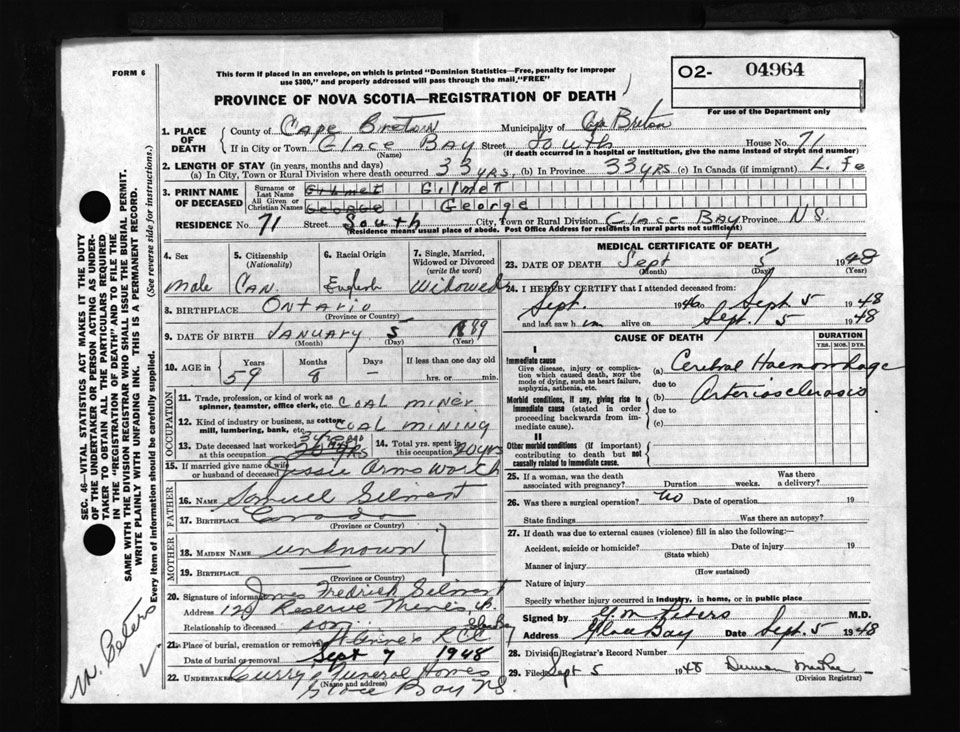 FORM 6
This form if placed in an envelope, on which is printed "Dominion Statistics—Free, penalty for improper
use $300," and properly addressed will pass through the mail, "FREE"
02- 04964
For use of the Department only
PROVINCE OF NOVA SCOTIA—REGISTRATION OF DEATH
1. PLACE OF DEATH
County of Cape Breton Municipality of Cape Breton
If in City or Town Glace Bay Street South House No. 71
(Name) (If death occurred in a hospital or institution, give the name instead of street and number)
2. LENGTH OF STAY (in years, months and days)
(a) In City, Town or Rural Division where death occurred 33 yrs. (b) In Province 33 yrs (c) In Canada (if immigrant) Life
3. PRINT NAME OF DECEASED
Surname or Last Name Gilmet
All Given or Christian Names George George
RESIDENCE No. 71 Street South City, Town or Rural Division Glace Bay Province N.S.
(Residence means usual place of abode. Post Office Address for residents in rural parts not sufficient)
4. Sex Male
5. Citizenship (Nationality) Can.
6. Racial Origin English
7. Single, Married, Widowed or Divorced (write the word) Widowed
8. BIRTHPLACE Ontario
(Province or Country)
9. DATE OF BIRTH January 5 1889
(Month) (Day) (Year)
10. AGE in Years Months Days If less than one day old
59 8 — hrs. or min.
OCCUPATION
11. Trade, profession, or kind of work as spinner, teamster, office clerk, etc. Coal miner
12. Kind of industry or business, as cotton mill, lumbering, bank, etc. Coal mining
13. Date deceased last worked at this occupation
14. Total yrs. spent in this occupation 20 yrs
15. If married give name of wife or husband of deceased Jessie Armsworth
FATHER
16. NAME Samuel
17. BIRTHPLACE Canada
(Province or Country)
MOTHER
18. MAIDEN NAME unknown
19. BIRTHPLACE —
(Province or Country)
20. Signature of informant James Fredrick
Address 120 Reserve Mines, C.B.
Relationship to deceased son
21. Place of burial, cremation or removal R.C.C.
Date of burial or removal Sept 7 1948
22. UNDERTAKER Curry's Funeral Home
(Name and address)
Glace Bay N.S.
MEDICAL CERTIFICATE OF DEATH
23. DATE OF DEATH Sept 5 1948
(Month) (Day) (Year)
24. I HEREBY CERTIFY that I attended deceased from:
Sept. 1946 to Sept 5 1948
and last saw him alive on Sept. 5 1948
CAUSE OF DEATH
DURATION
YRS. MOS. DYS.
I
Immediate cause
Give disease, injury or complication which caused death, not the mode of dying, such as heart failure, asphyxia, asthenia, etc.
(a) Cerebral Haemorrhage
due to
Morbid conditions, if any, giving rise to immediate cause (stated in order proceeding backwards from immediate cause).
(b) Arteriosclerosis
due to
(c)
II
Other morbid conditions (if important) contributing to death but not causally related to immediate cause.
25. If a woman, was the death associated with pregnancy? Duration weeks. Was there a delivery?
26. Was there a surgical operation? no Date of operation 19
State findings Was there an autopsy?
27. If death was due to external causes (violence) fill in also the following:—
Accident, suicide or homicide? Date of injury 19
(State which)
Manner of injury
(How sustained)
Nature of injury
Specify whether injury occurred in industry, in home, or in public place
Signed by Peters M.D.
Address Glace Bay Date Sept. 5 1948
28. Division Registrar's Record Number
29. Filed Sept 5 1948
(Division Registrar)
SEC. 46—VITAL STATISTICS ACT MAKES IT THE DUTY
OF THE UNDERTAKER OR PERSON ACTING AS UNDER-
TAKER TO OBTAIN ALL THE PARTICULARS REQUIRED
IN THE "REGISTRATION OF DEATH" AND TO FILE THE
SAME WITH THE DIVISION REGISTRAR WHO SHALL ISSUE THE BURIAL PERMIT.
WRITE PLAINLY WITH UNFADING INK. THIS IS A PERMANENT RECORD.
Every item of information should be carefully supplied. (See reverse side for instructions.)
W. Peters